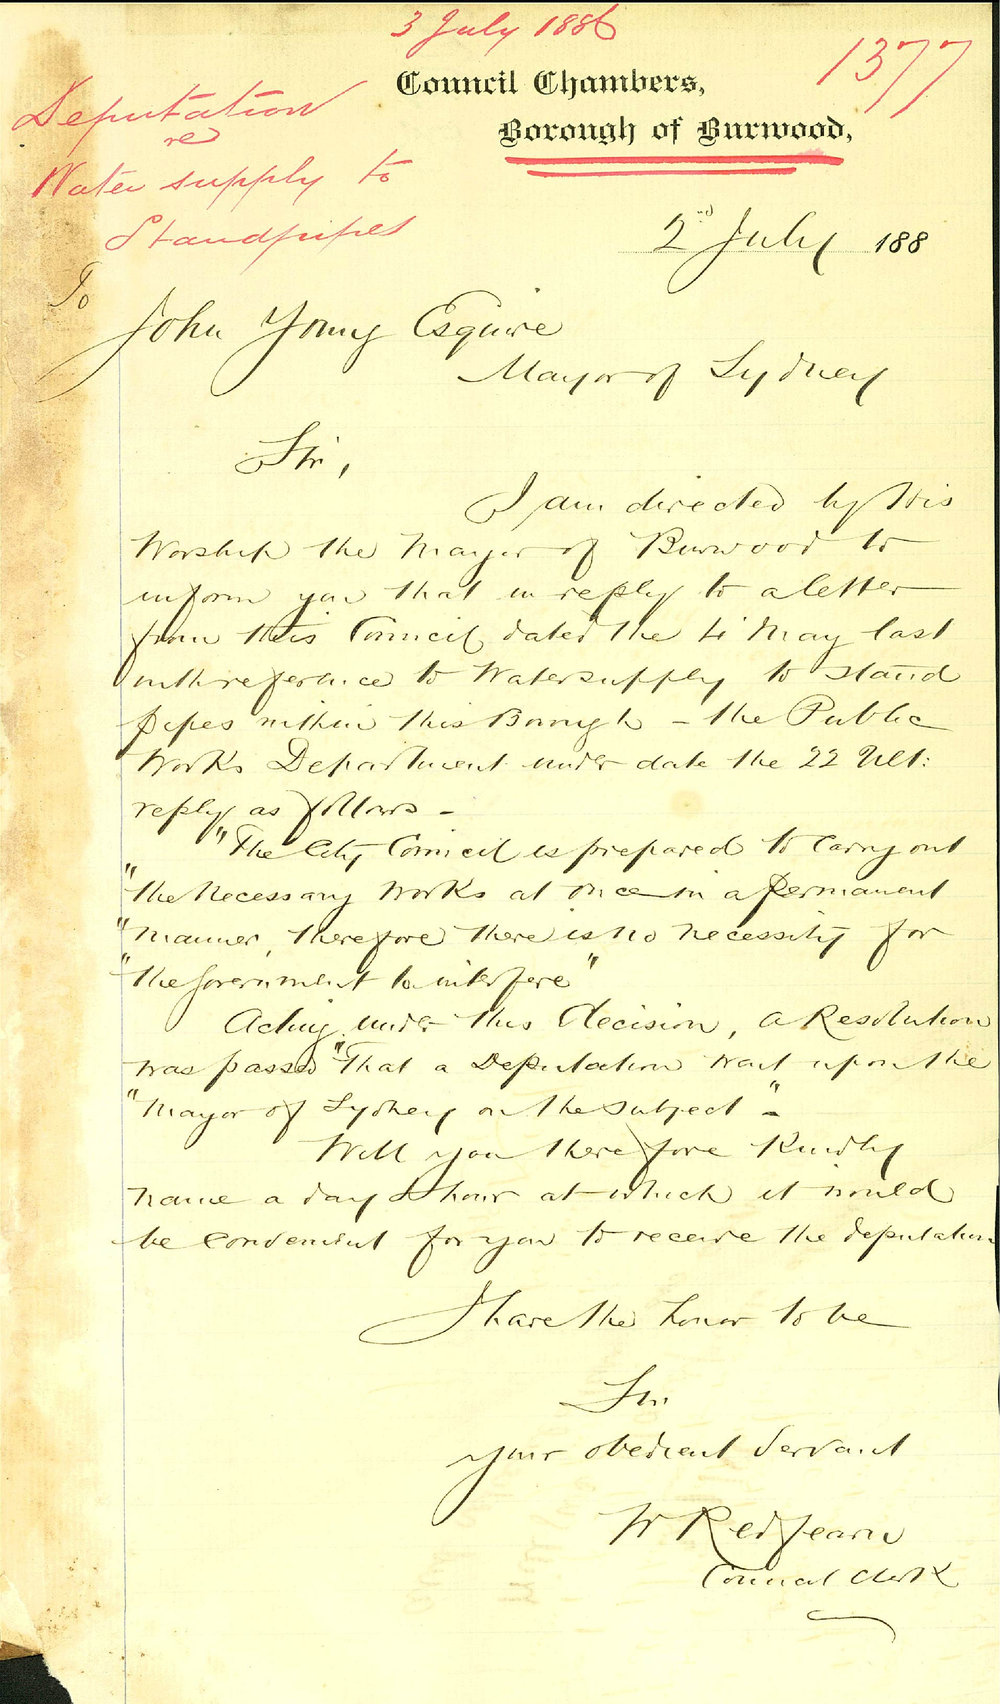 3 July 1886
1377
Council Chambers,
Borough of Burwood,
Deputation
re
Water supply to
Standpipes
2nd July 188
To
John Young Esquire
Mayor of Sydney
Sir,
I am directed by His
Worship the Mayor of Burwood to
inform you that in reply to a letter
from this Council dated the 4 May last
with reference to Water supply to stand
pipes within this Borough – the Public
Works Department under date the 22 Ult:
reply as follows –
"The City Council is prepared to carry out
"the necessary works at once in a permanent
"manner, therefore there is no necessity for
"the Government to interfere"
Acting under this decision, a Resolution
was passed "That a Deputation wait upon the
"Mayor of Sydney on the subject" –
Will you therefore kindly
name a day & hour at which it would
be convenient for you to receive the deputation
I have the honor to be
Sir
your obedient Servant
W Redfearn
Council Clerk